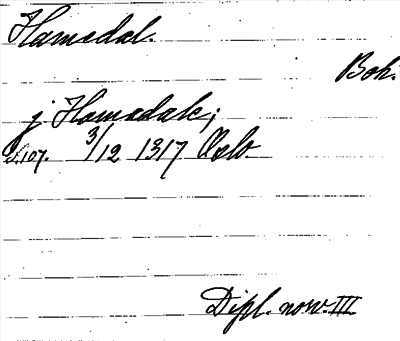 Hamedal.
Boh.
j Hamedale;
S.107. 3/12 1317 Oslo.
Dipl. norv. III